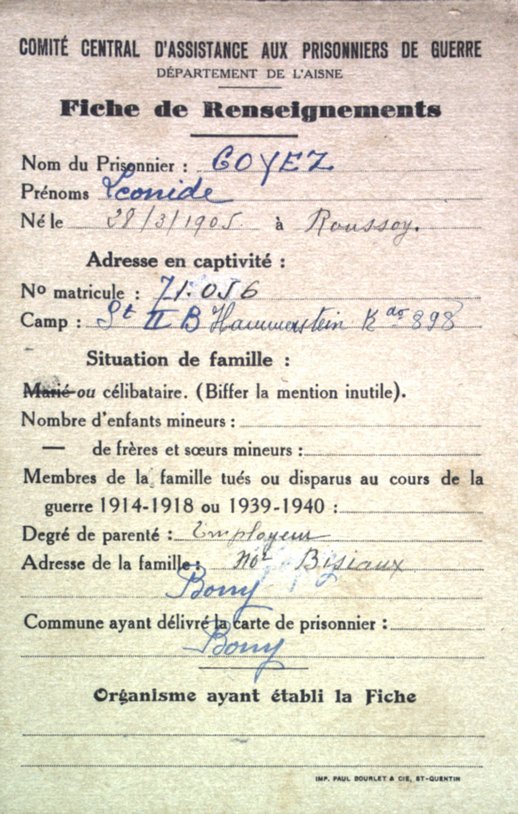 COMITÉ CENTRAL D'ASSISTANCE AUX PRISONNIERS DE GUERRE
DÉPARTEMENT DE L'AISNE
Fiche de Renseignements
Nom du Prisonnier : GOYEZ
Prénoms Léonide
Né le 28/3/1905 à Roussoy.
Adresse en captivité :
No matricule : 71.056
Camp : St II B Hammerstein Kdo 898
Situation de famille :
Marié ou célibataire. (Biffer la mention inutile).
Nombre d'enfants mineurs :
— de frères et sœurs mineurs :
Membres de la famille tués ou disparus au cours de la
guerre 1914-1918 ou 1939-1940 :
Degré de parenté : Employeur
Adresse de la famille : Bisiaux
Bony
Commune ayant délivré la carte de prisonnier :
Bony
Organisme ayant établi la Fiche
IMP. PAUL BOURLET & CIE, ST-QUENTIN